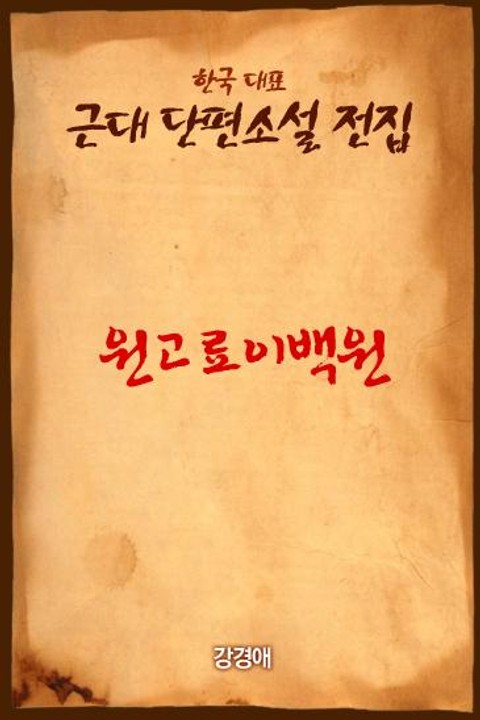 한국 대표
근대 단편소설 전집
원고료이백원
강경애